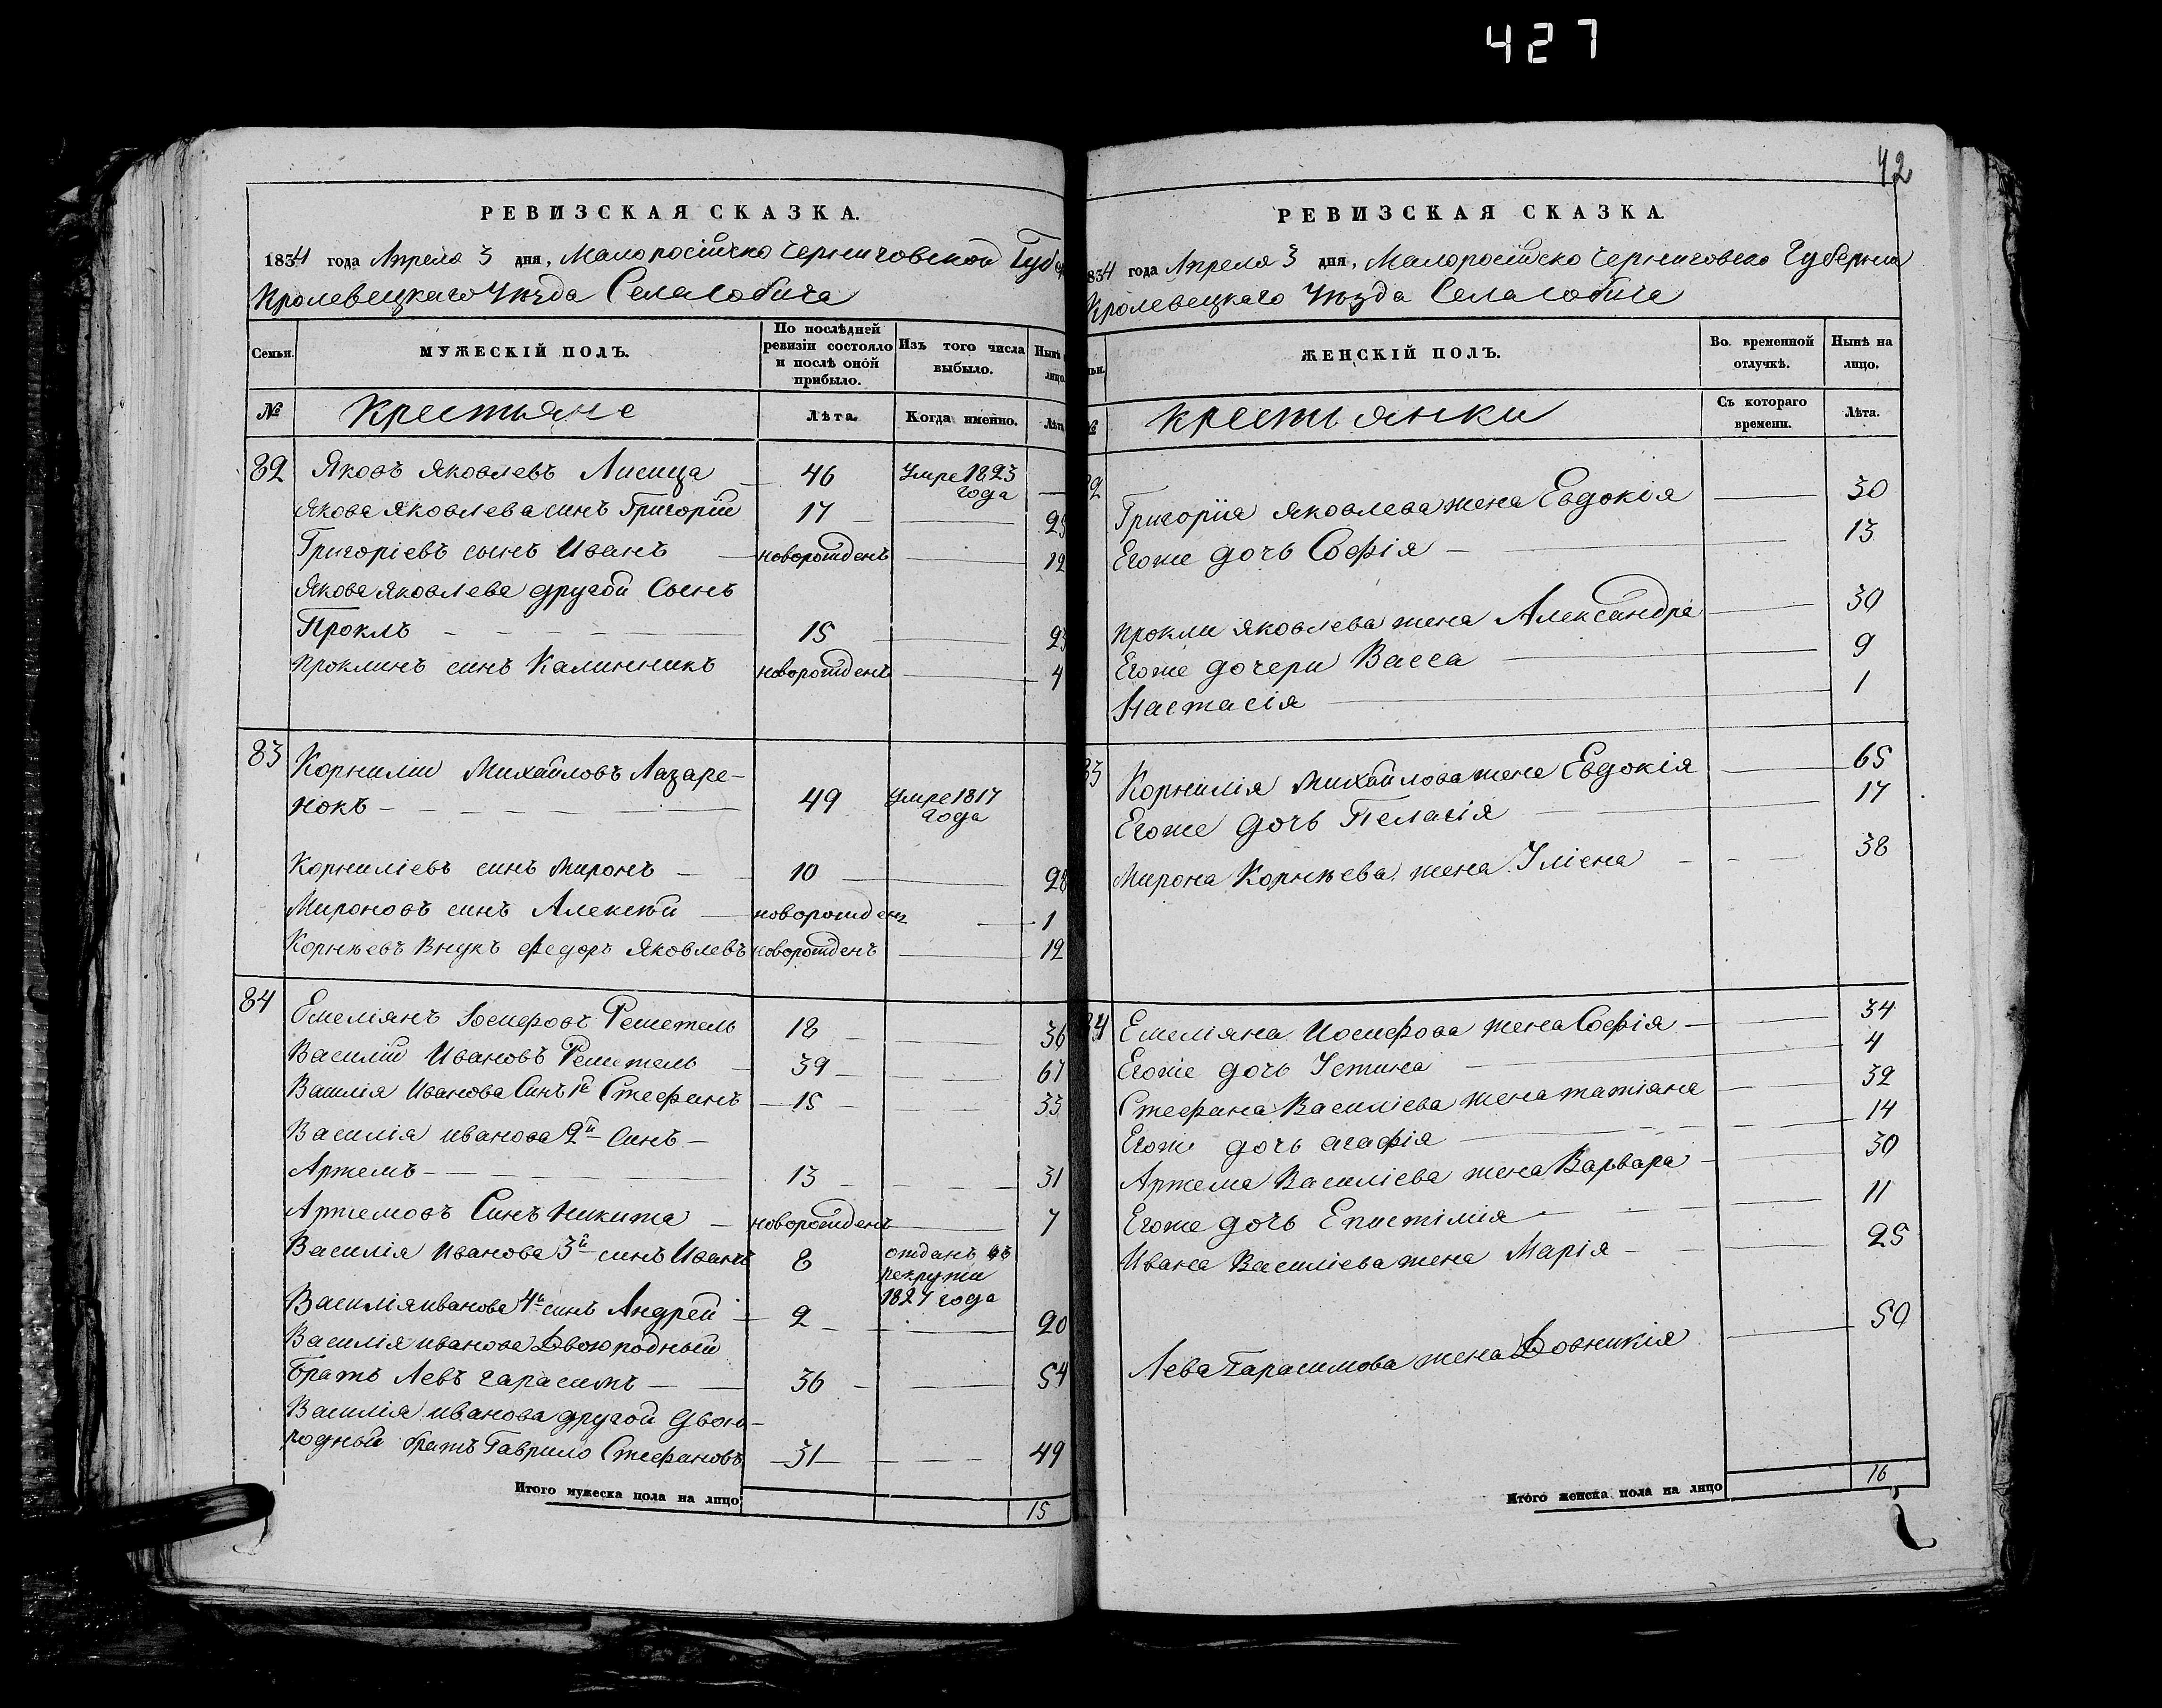 427
РЕВИЗСКАЯ СКАЗКА.
1834 года Апреля 3 дня, Малоросійско Черниговской Губер
Кролевецкаго Уѣзда Села Собича
Семьи.
МУЖЕСКІЙ ПОЛЪ.
По послѣдней ревизіи состояло и послѣ оной прибыло.
Изъ того числа выбыло.
Нынѣ лицо
№
Крестьяне
Лѣта.
Когда именно.
Лѣта
82 Яковъ Яковлевъ Лисица 46 Умре 1823 года
Якова Яковлева синъ Григорій 17
Григоріевъ сынъ Иванъ новорожденъ 12
Якова Яковлева другой Сынъ
Проклъ 15
Проклинъ синъ Калинникъ новорожденъ 4
83 Корнилій Михайловъ Лазаре-
нокъ 49 Умре 1817 года
Корниліевъ синъ Миронъ 10 28
Мироновъ синъ Алексѣй новорожденъ 1
Корнѣевъ внукъ Федоръ Яковлевъ новорожденъ 12
84 Емеліянъ Іосифовъ Решетель 18 36
Василій Ивановъ Решетель 39
Василія Иванова Синъ 1й Стефанъ 15 33
Василія Иванова 2й Синъ
Артемъ 13 31
Артемовъ Синъ Никита новорожденъ 7
Василія Иванова 3й синъ Иванъ 8 отданъ въ
рекрути
1827 года
Василія Иванова 4й синъ Андрей 2 20
Василія Иванова Двоюродный
Братъ Левъ Гарасимъ 36 54
Василія Иванова другой двою-
родный братъ Гаврило Стефановъ 31 49
Итого мужеска пола на лицо 15
42
РЕВИЗСКАЯ СКАЗКА.
834 года Апреля 3 дня, Малоросійско Черниговско Губерніи
Кролевецкаго Уѣзда Села Собича
ьи.
ЖЕНСКІЙ ПОЛЪ.
Во временной отлучкѣ.
Нынѣ на лицо.
№
крестьянки
Съ котораго времени.
Лѣта.
82
Григорія Яковлева жена Евдокія 30
Егоже дочь Софія 13
Прокли Яковлева жена Александра 30
Егоже дочери Васса 9
Настасія 1
83 Корнилія Михайлова жена Евдокія 65
Егоже дочь Пелагія 17
Мирона Корнѣева жена Уліена 38
84 Емеліяна Иосифова жена Софія 34
Егоже дочь Устина 4
Стефана Василіева жена Татіяна 32
Егож дочь Агафія 14
Артема Василіева жена Варвара 30
Егоже дочь Епистимія 11
Ивана Василіева жена Марія 25
Лева Гарасимова жена Довникія 50
Итого женска пола на лицо 16